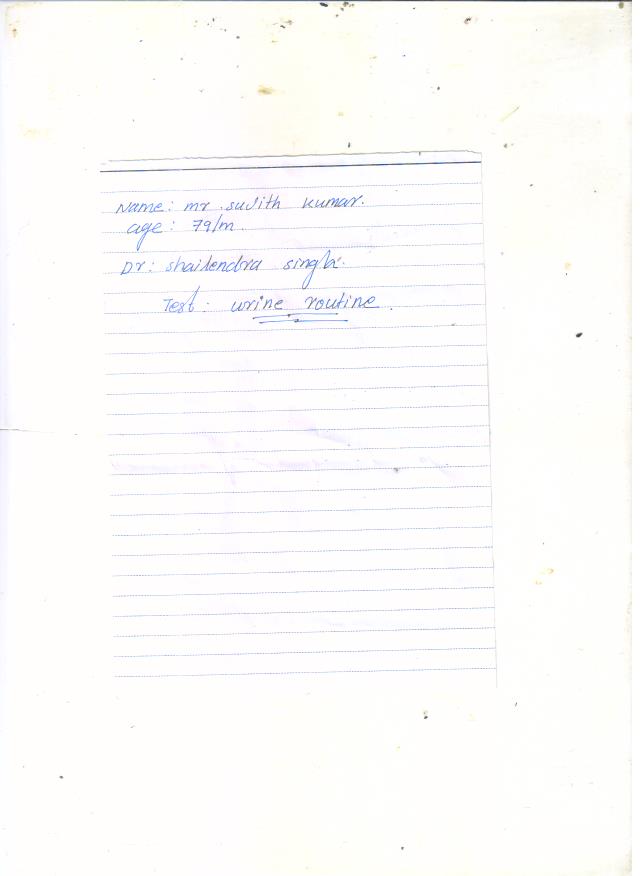 Name: mr. suJith kumar.
age: 79/m.
Dr: shailendra singla.
Test: urine routine.